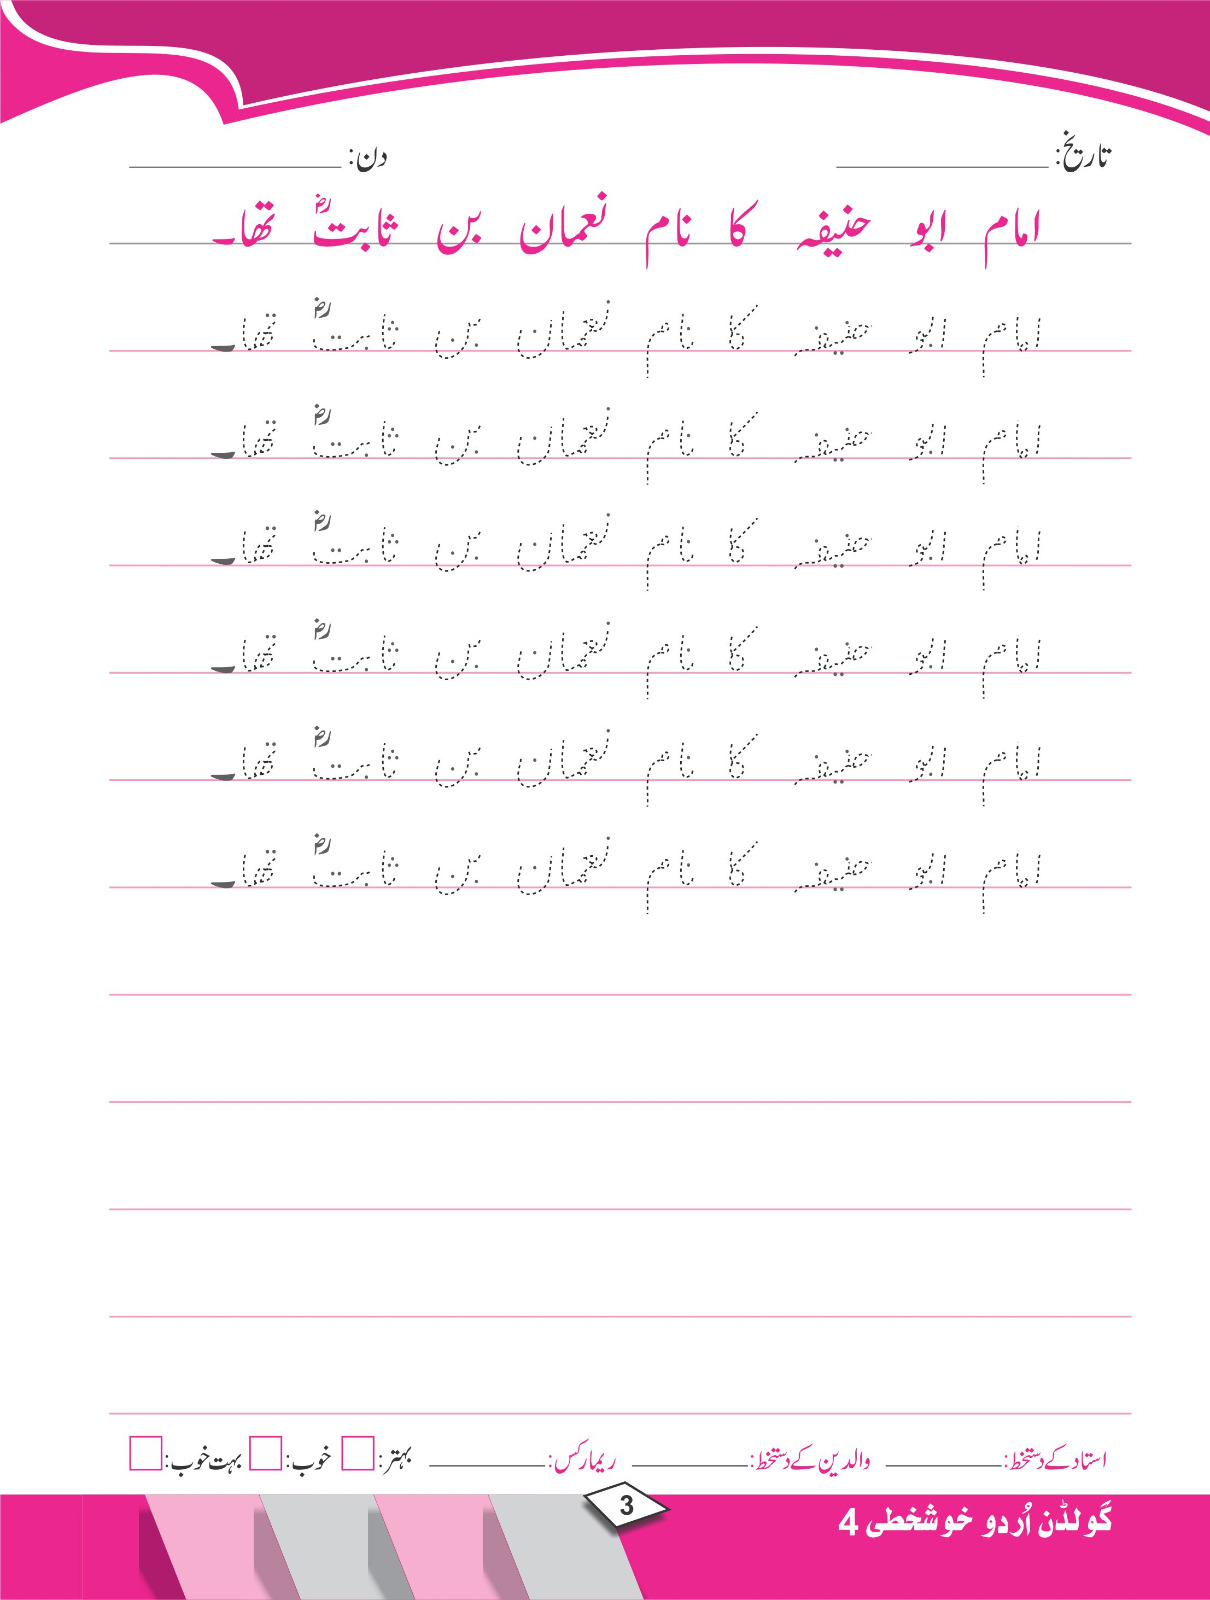 تاریخ: ____________ دن: ____________
امام ابو حنیفہ کا نام نعمان بن ثابتؓ تھا۔
امام ابو حنیفہ کا نام نعمان بن ثابتؓ تھا۔
امام ابو حنیفہ کا نام نعمان بن ثابتؓ تھا۔
امام ابو حنیفہ کا نام نعمان بن ثابتؓ تھا۔
امام ابو حنیفہ کا نام نعمان بن ثابتؓ تھا۔
امام ابو حنیفہ کا نام نعمان بن ثابتؓ تھا۔
امام ابو حنیفہ کا نام نعمان بن ثابتؓ تھا۔
استاد کے دستخط: ________ والدین کے دستخط: ________ ریمارکس: ________ بہتر: خوب: بہت خوب:
3
گولڈن اُردو خوشخطی 4